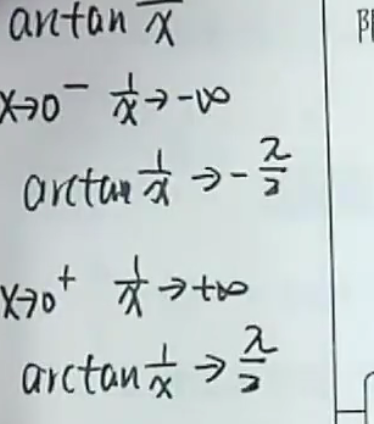 arctan 1/x
x→0⁻ 1/x→-∞
arctan 1/x → -π/2
x→0⁺ 1/x→+∞
arctan 1/x → π/2